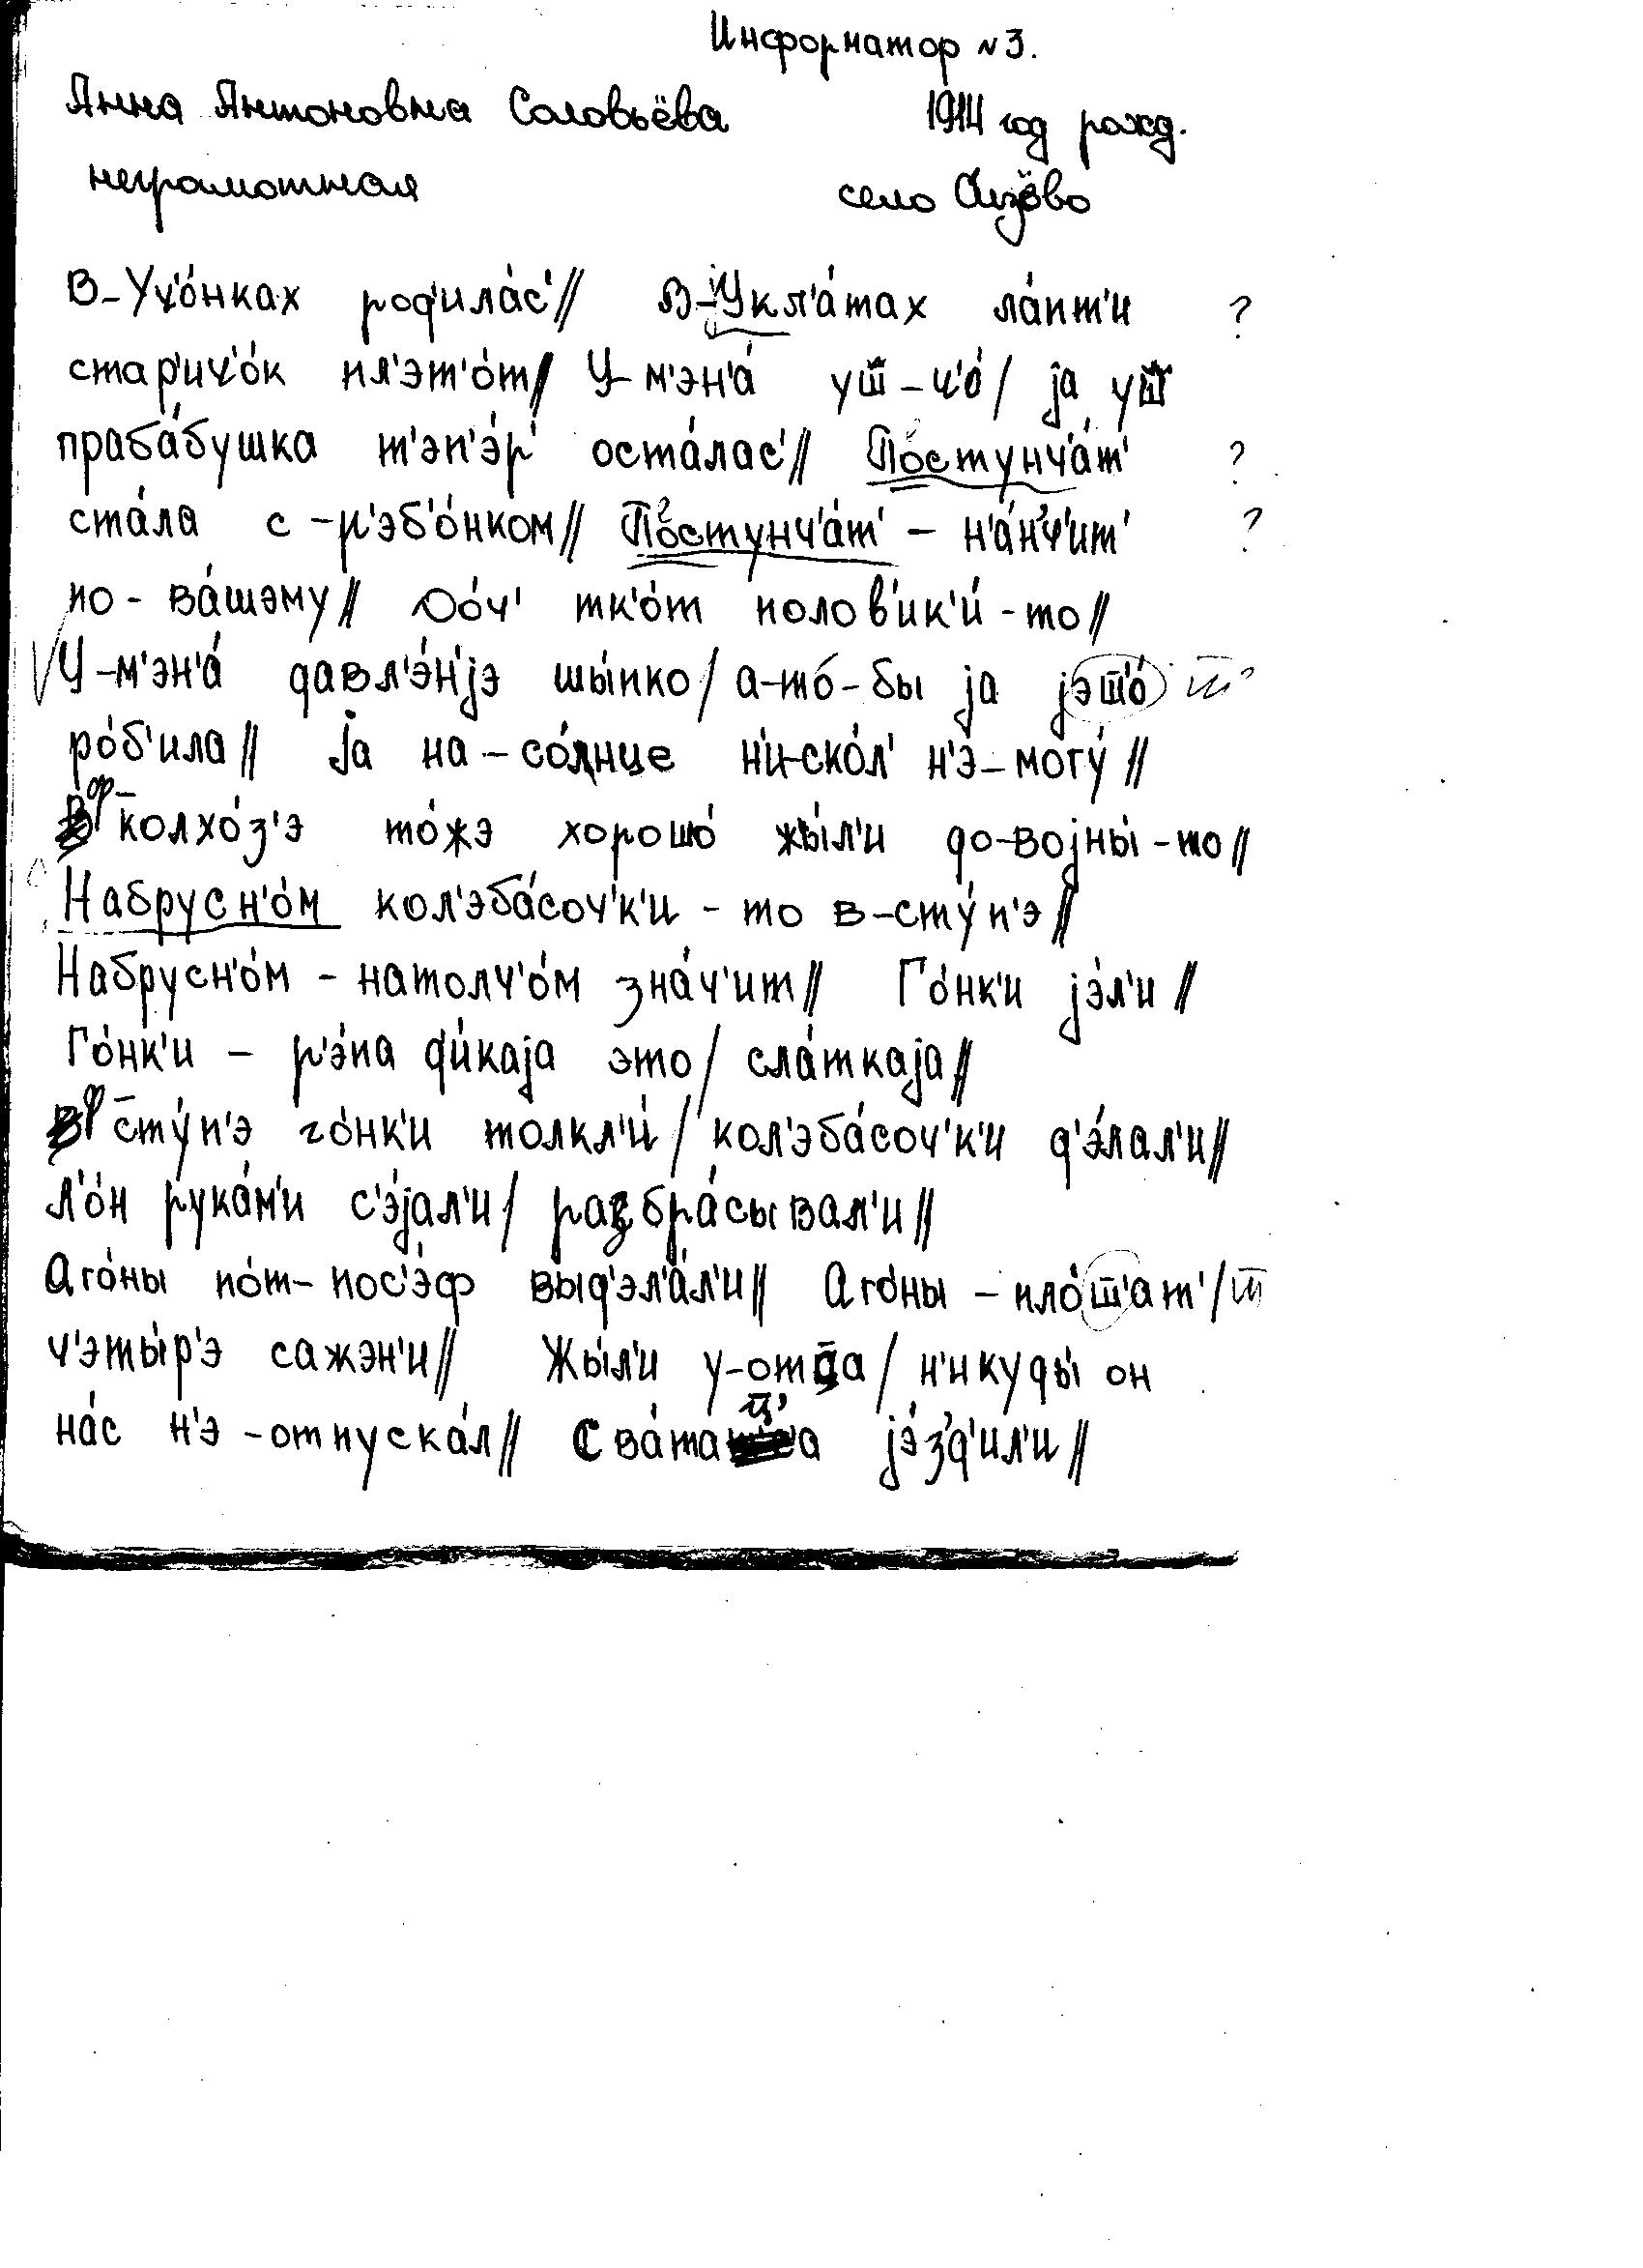 Информатор №3.
Анна Антоновна Соловьёва 1914 год рожд.
неграмотная село
В-Уч'о́нках род'ила́с'// В-Укл'а́тах ла́пт'и ?
стар'ич'о́к пл'эт'о́т// У-м'эн'а́ уш̅-ч'о́/ jа уш̅
праба́бушка т'эп'э́р' оста́лас'// Постунч'а́т' ?
ста́ла с-р'эб'о́нком// Постунч'а́т' - н'а́нч'ит' ?
по-ва́шэму// До́ч' тк'о́т полов'ик'и́-то//
У-м'эн'а́ давл'э́н'jэ шы́пко/ а-то́-бы jа jэш̅'о́ ш̅'
ро́б'ила// jа на-со́лнце н'и-ско́л' н'э-могу́//
ф-колхо́з'э то́жэ хорошо́ жы́л'и до-воjны́-то//
Набрусн'о́м кол'эба́соч'к'и-то в-сту́п'э//
Набрусн'о́м - натолч'о́м зна́ч'ит// Го́нк'и jэ́л'и//
Го́нк'и - р'э́па д'и́каjа это/ сла́ткаjа//
ф-сту́п'э го́нк'и толкл'и́/ кол'эба́соч'к'и д'э́лал'и//
Л'о́н рука́м'и с'э́jал'и/ разбра́сывал'и//
Аго́ны по́т-пос'э́ф выд'эл'а́л'и// Аго́ны - пло́ш̅'ат'/ ш̅
ч'эты́р'э сажэн'и// Жы́л'и у-отца/ н'икуды́ он
на́с н'э-отпуска́л// Сва́тац̅'а jэ́з'д'ил'и//